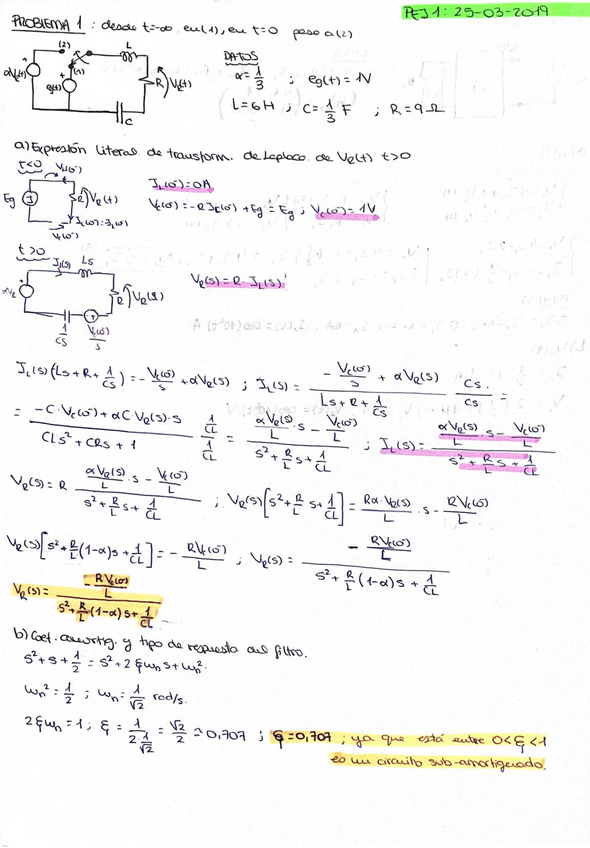 PEI 1: 29-03-2019
PROBLEMA 1: desde t=-∞ en (1), en t=0 pasa a (2)
(2) L
αVr(t) + (1) + eg(t) R Vr(t)
C
DATOS
α = 1/3 ; eg(t) = 1V
L = 6H ; C = 1/3 F ; R = 9Ω
a) Expresión literal de transform. de Laplace de VR(t) t>0
t<0
Eg R VR(t)
IL(0⁻) = 0A
Vc(0⁻) = -R IL(0⁻) + Eg = Eg ; Vc(0⁻) = 1V
t>0
IL(s) Ls
R VR(s)
1/Cs Vc(0⁻)/s
VR(s) = R · IL(s)
IL(s)(Ls + R + 1/Cs) = - Vc(0⁻)/s + αVR(s) ; IL(s) = (- Vc(0⁻)/s + αVR(s))/(Ls + R + 1/Cs) · Cs/Cs =
= (-C·Vc(0⁻) + αC·VR(s)·s)/(CLs² + CRs + 1) · (1/CL)/(1/CL) = (αVR(s)/L · s - Vc(0⁻)/L)/(s² + R/L s + 1/CL) ; IL(s) = (αVR(s)/L · s - Vc(0⁻)/L)/(s² + R/L s + 1/CL)
VR(s) = R (αVR(s)/L · s - Vc(0⁻)/L)/(s² + R/L s + 1/CL) ; VR(s)[s² + R/L s + 1/CL] = Rα·VR(s)/L · s - RVc(0⁻)/L
VR(s)[s² + R/L (1-α)s + 1/CL] = - RVc(0⁻)/L ; VR(s) = (- RVc(0⁻)/L)/(s² + R/L (1-α)s + 1/CL)
VR(s) = (- RVc(0⁻)/L)/(s² + R/L (1-α)s + 1/CL)
b) Coef. amortig. y tipo de respuesta del filtro.
s² + s + 1/2 = s² + 2ξωn s + ωn²
ωn² = 1/2 ; ωn = 1/√2 rad/s.
2ξωn = 1 ; ξ = 1/(2 1/√2) = √2/2 ≃ 0,707 ; ξ = 0,707 ; ya que está entre 0<ξ<1
es un circuito sub-amortiguado.